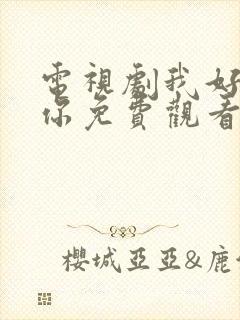 電視劇我好
你免費觀看
櫻城亞亞&鹿